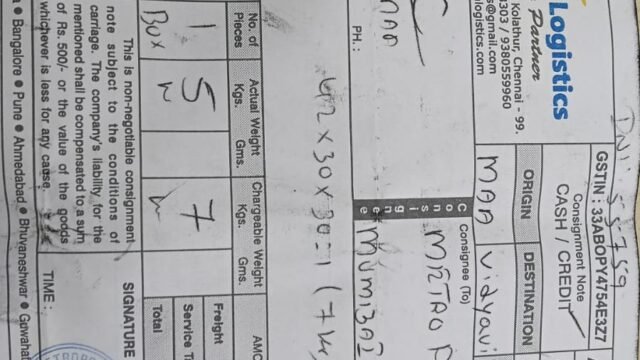 Logistics
Partner
Kolathur, Chennai - 99.
303 / 9380559960
s@gmail.com
logistics.com
GSTIN : 33ABOPY4754E3Z7
Consignment Note
CASH / CREDIT
ORIGIN
DESTINATION
MAA
PH. :
Consignee (To)
Consignee
METROP
MUMBAI
42 x 30 x 30 = 1 (7
No. of
Pieces
Actual Weight
Kgs. Gms.
Chargeable Weight
Kgs. Gms.
1
Box
5
7
Freight
Service T
Total
This is non-negotiable consignment
note subject to the conditions of
carriage. The company's liability for the
mentioned shall be compensated to a sum
of Rs. 500/- or the value of the goods
whichever is less for any cause.
SIGNATURE
TIME :
● Bangalore ● Pune ● Ahmedabad ● Bhuvaneshwar ● Gowahat